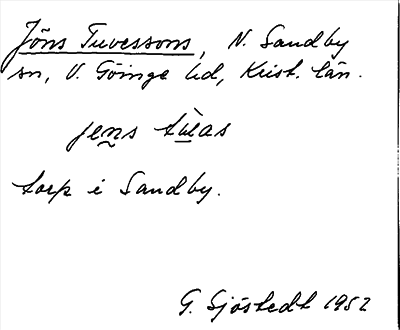 Jöns Tuvessons, N. Sandby
sn, V. Göinge hd, Krist. län.
jens tùas
torp i Sandby.
G. Sjöstedt 1952